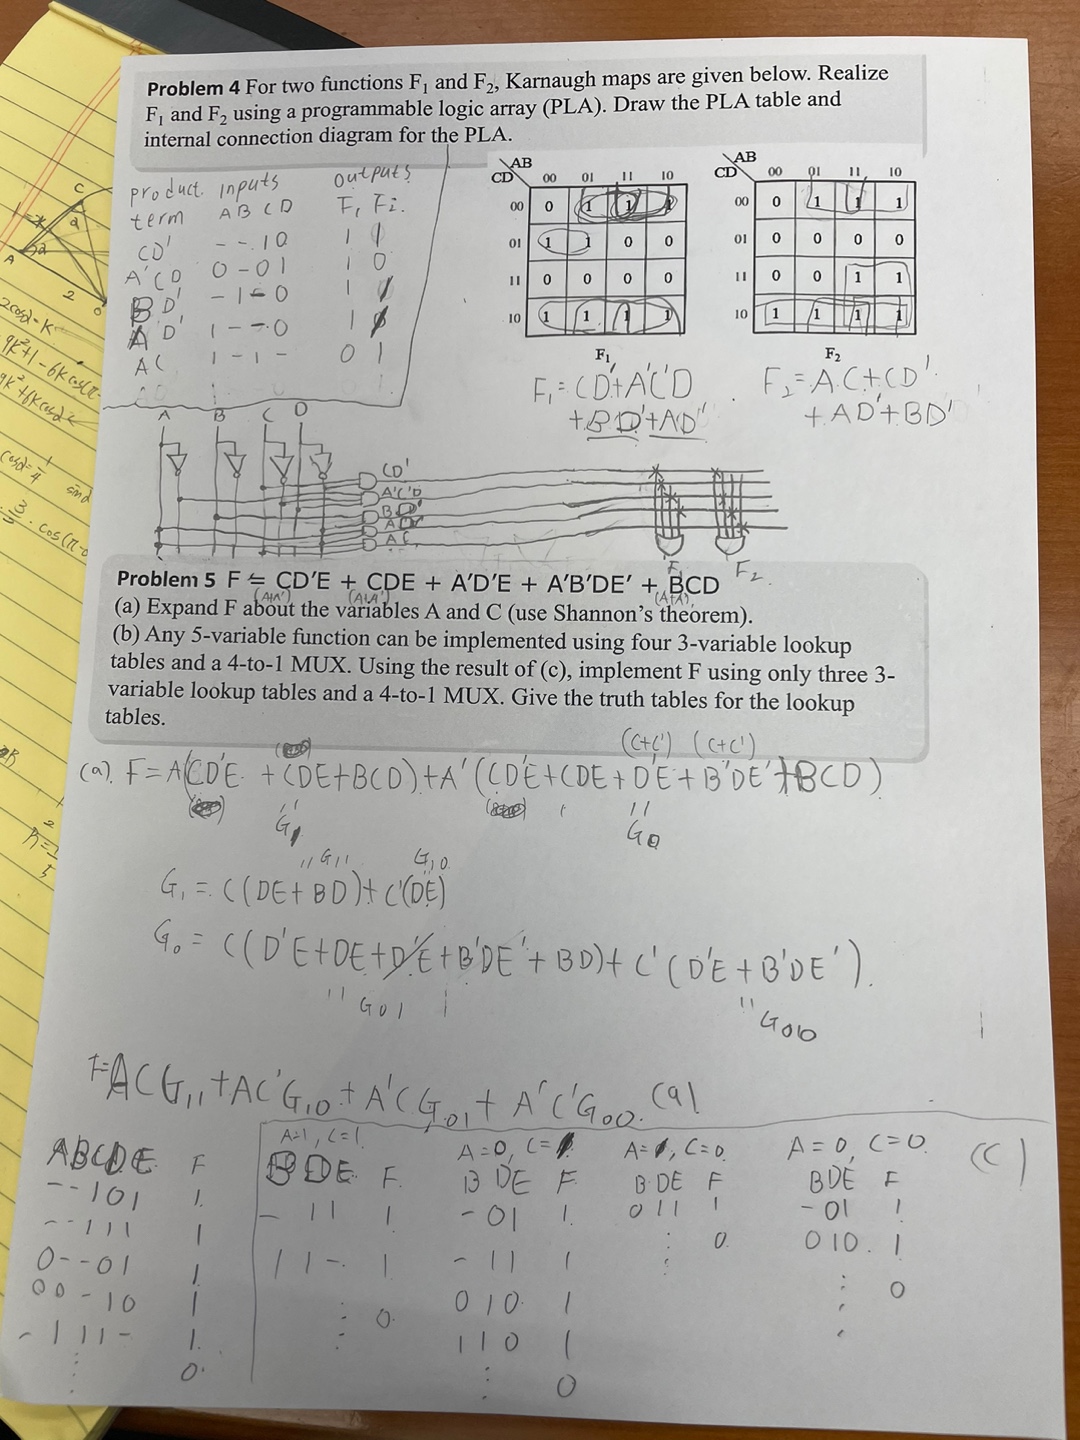 Problem 4 For two functions F₁ and F₂, Karnaugh maps are given below. Realize
F₁ and F₂ using a programmable logic array (PLA). Draw the PLA table and
internal connection diagram for the PLA.
product inputs outputs
term A B C D F₁ F₂
CD' - - 1 0 1 1
A'C'D 0 - 0 1 1 0
BD' - 1 - 0 1 1
AD' 1 - - 0 1 1
AC 1 - 1 - 0 1
AB
CD 00 01 11 10
00 0 1 1 1
01 1 1 0 0
11 0 0 0 0
10 1 1 1 1
F₁
AB
CD 00 01 11 10
00 0 1 1 1
01 0 0 0 0
11 0 0 1 1
10 1 1 1 1
F₂
F₁ = CD'+A'C'D
+BD'+AD'
F₂ = AC+CD'
+AD'+BD'
A B C D
CD'
A'C'D
BD'
AD'
AC
F₁ F₂
Problem 5 F = CD'E + CDE + A'D'E + A'B'DE' + BCD
(A+A') (A+A') (A+A')
(a) Expand F about the variables A and C (use Shannon's theorem).
(b) Any 5-variable function can be implemented using four 3-variable lookup
tables and a 4-to-1 MUX. Using the result of (c), implement F using only three 3-
variable lookup tables and a 4-to-1 MUX. Give the truth tables for the lookup
tables.
(C+C') (C+C')
(a). F=A(CD'E + CDE+BCD)+A'(CD'E+CDE+D'E+B'DE'+BCD)
G₁
G₀
G₁₁ G₁₀
G₁ = C(DE+BD)+C'(DE)
G₀ = C(D'E+DE+D'E+B'DE'+BD)+C'(D'E+B'DE').
G₀₁
G₀₀
F=ACG₁₁+AC'G₁₀+A'CG₀₁+A'C'G₀₀. (a)
ABCDE F
--101 1
--111 1
0--01 1
00-10 1
-111- 1
0
A=1, C=1
BDE F
-11 1
11- 1
0
A=0, C=1
BDE F
-01 1
-11 1
010 1
110 1
0
A=1, C=0
BDE F
011 1
0
A=0, C=0
BDE F
-01 1
010 1
0
(c)